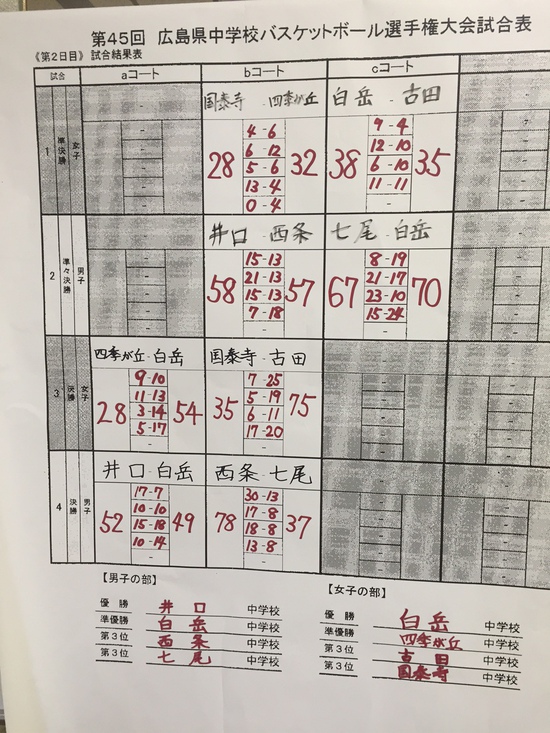 第45回 広島県中学校バスケットボール選手権大会試合表
《第2日目》 試合結果表
試合 aコート bコート cコート
1 準決勝 女子
国泰寺 - 四季が丘
28 32
4-6
6-12
5-6
13-4
0-4
白岳 - 古田
38 35
9-4
12-10
6-10
11-11
2 準々決勝 男子
井口 - 西条
58 57
15-13
21-13
15-13
7-18
七尾 - 白岳
67 70
8-19
21-17
23-10
15-24
3 決勝 女子
四季が丘 - 白岳
28 54
9-10
11-13
3-14
5-17
国泰寺 - 古田
35 75
7-25
5-19
6-11
17-20
4 決勝 男子
井口 - 白岳
52 49
17-7
10-10
15-18
10-14
西条 - 七尾
78 37
30-13
17-8
18-8
13-8
【男子の部】
優勝 井口 中学校
準優勝 白岳 中学校
第3位 西条 中学校
第3位 七尾 中学校
【女子の部】
優勝 白岳 中学校
準優勝 四季が丘 中学校
第3位 古田 中学校
第3位 国泰寺 中学校